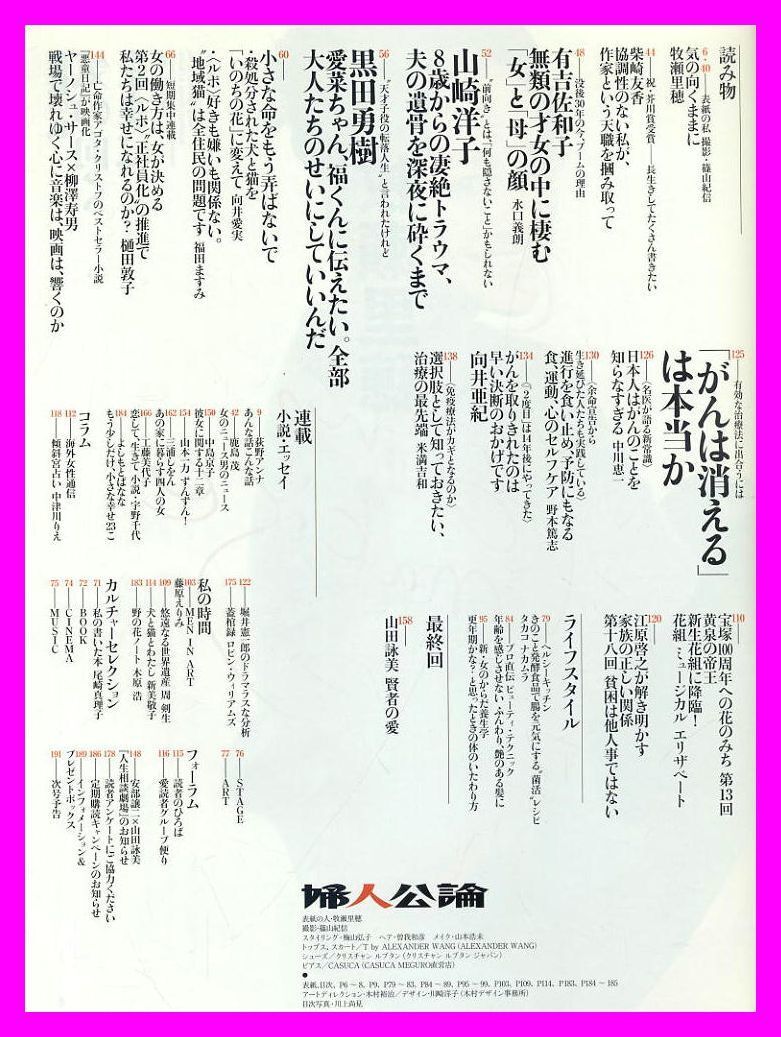 読み物
6・40 表紙の私 撮影・篠山紀信
気の向くままに
牧瀬里穂
44 祝・芥川賞受賞――長生きしてたくさん書きたい
柴崎友香
協調性のない私が、
作家という天職を掴み取って
48 没後30年の今、ブームの理由
有吉佐和子
無類の才女の中に棲む
「女」と「母」の顔 水口義朗
52 “前向き”とは「何も隠さないこと」かもしれない
山崎洋子
8歳からの凄絶トラウマ、
夫の遺骨を深夜に砕くまで
56 “天才子役の転落人生”と言われたけれど
黒田勇樹
愛菜ちゃん、福くんに伝えたい。全部
大人たちのせいにしていいんだ
60 小さな命をもう弄ばないで
・殺処分された犬と猫を
「いのちの花」に変えて 向井愛実
・〈ルポ〉好きも嫌いも関係ない。
“地域猫”は全住民の問題です 福田ますみ
66 短期集中連載
女の働き方は、女が決める
第2回〈ルポ〉“正社員化”の推進で
私たちは幸せになれるのか？ 樋田敦子
144 亡命作家アゴタ・クリストフのベストセラー小説
『悪童日記』が映画化
ヤーノシュ・サース×柳澤寿男
戦場で壊れゆく心に音楽は、映画は、響くのか
125 有効な治療法に出合うには
「がんは消える」
は本当か
126 〈名医が語る新常識〉
日本人はがんのことを
知らなすぎる 中川恵一
130 〈余命宣告から
生き延びた人たちも実践している〉
進行を食い止め、予防にもなる
食、運動、心のセルフケア 野本篤志
134 〈「2度目」は14年後にやってきた〉
がんを取りきれたのは
早い決断のおかげです
向井亜紀
138 〈免疫療法がカギとなるのか〉
選択肢として知っておきたい、
治療の最先端 米満吉和
連載
小説・エッセイ
9 荻野アンナ
あんな話こんな話
42 鹿島 茂
女のニュース男のニュース
150 中島京子
彼女に関する十二章
154 山本一力 ずんずん！
162 三浦しをん
あの家に暮らす四人の女
166 工藤美代子
恋して、生きて 小説・宇野千代
184 よしもとばなな
もう少しだけ、小さな幸せ23こ
コラム
112 海外女性通信
118 傾斜宮占い 中津川りえ
110 宝塚100周年への花のみち 第13回
黄泉の帝王
新生花組に降臨！
花組 ミュージカル エリザベート
120 江原啓之が解き明かす
家族の正しい関係
第十八回 貧困は他人事ではない
ライフスタイル
79 ヘルシーキッチン
きのこと発酵食品で腸を元気にする“菌活”レシピ
タカコ ナカムラ
84 プロ直伝 ビューティ・テクニック
年齢を感じさせない、ふんわり、艶のある髪に
95 新・女のからだ養生学
更年期かな？と思ったときの体のいたわり方
最終回
158 山田詠美 賢者の愛
122 堀井憲一郎のドラマラスな分析
175 蓋棺録 ロビン・ウィリアムズ
私の時間
103 MEN IN ART
藤原えりみ
109 悠遠なる世界遺産 周 剣生
114 犬と猫とわたし 新美敬子
183 野の花ノート 木原 浩
カルチャーセレクション
71 私の書いた本 尾崎真理子
72 BOOK
74 CINEMA
75 MUSIC
76 STAGE
77 ART
フォーラム
115 読者のひろば
116 愛読者グループ便り
148 安部譲二×山田詠美
「人生相談劇場」のお知らせ
178 読者アンケートにご協力ください
186 定期購読キャンペーンのお知らせ
189 インフォメーション&
プレゼントボックス
191 次号予告
婦人公論
表紙の人・牧瀬里穂
撮影・篠山紀信
スタイリング・梅山弘子 ヘア・曽我和彦 メイク・山本浩未
トップス、スカート／T by ALEXANDER WANG（ALEXANDER WANG）
シューズ／クリスチャン ルブタン（クリスチャン ルブタン ジャパン）
ピアス／CASUCA（CASUCA MEGURO直営店）
●
表紙、目次、P6〜8、P9、P79〜83、P84〜89、P95〜99、P103、P109、P114、P183、P184〜185
アートディレクション・木村裕治／デザイン・川崎洋子（木村デザイン事務所）
目次写真・川上尚見